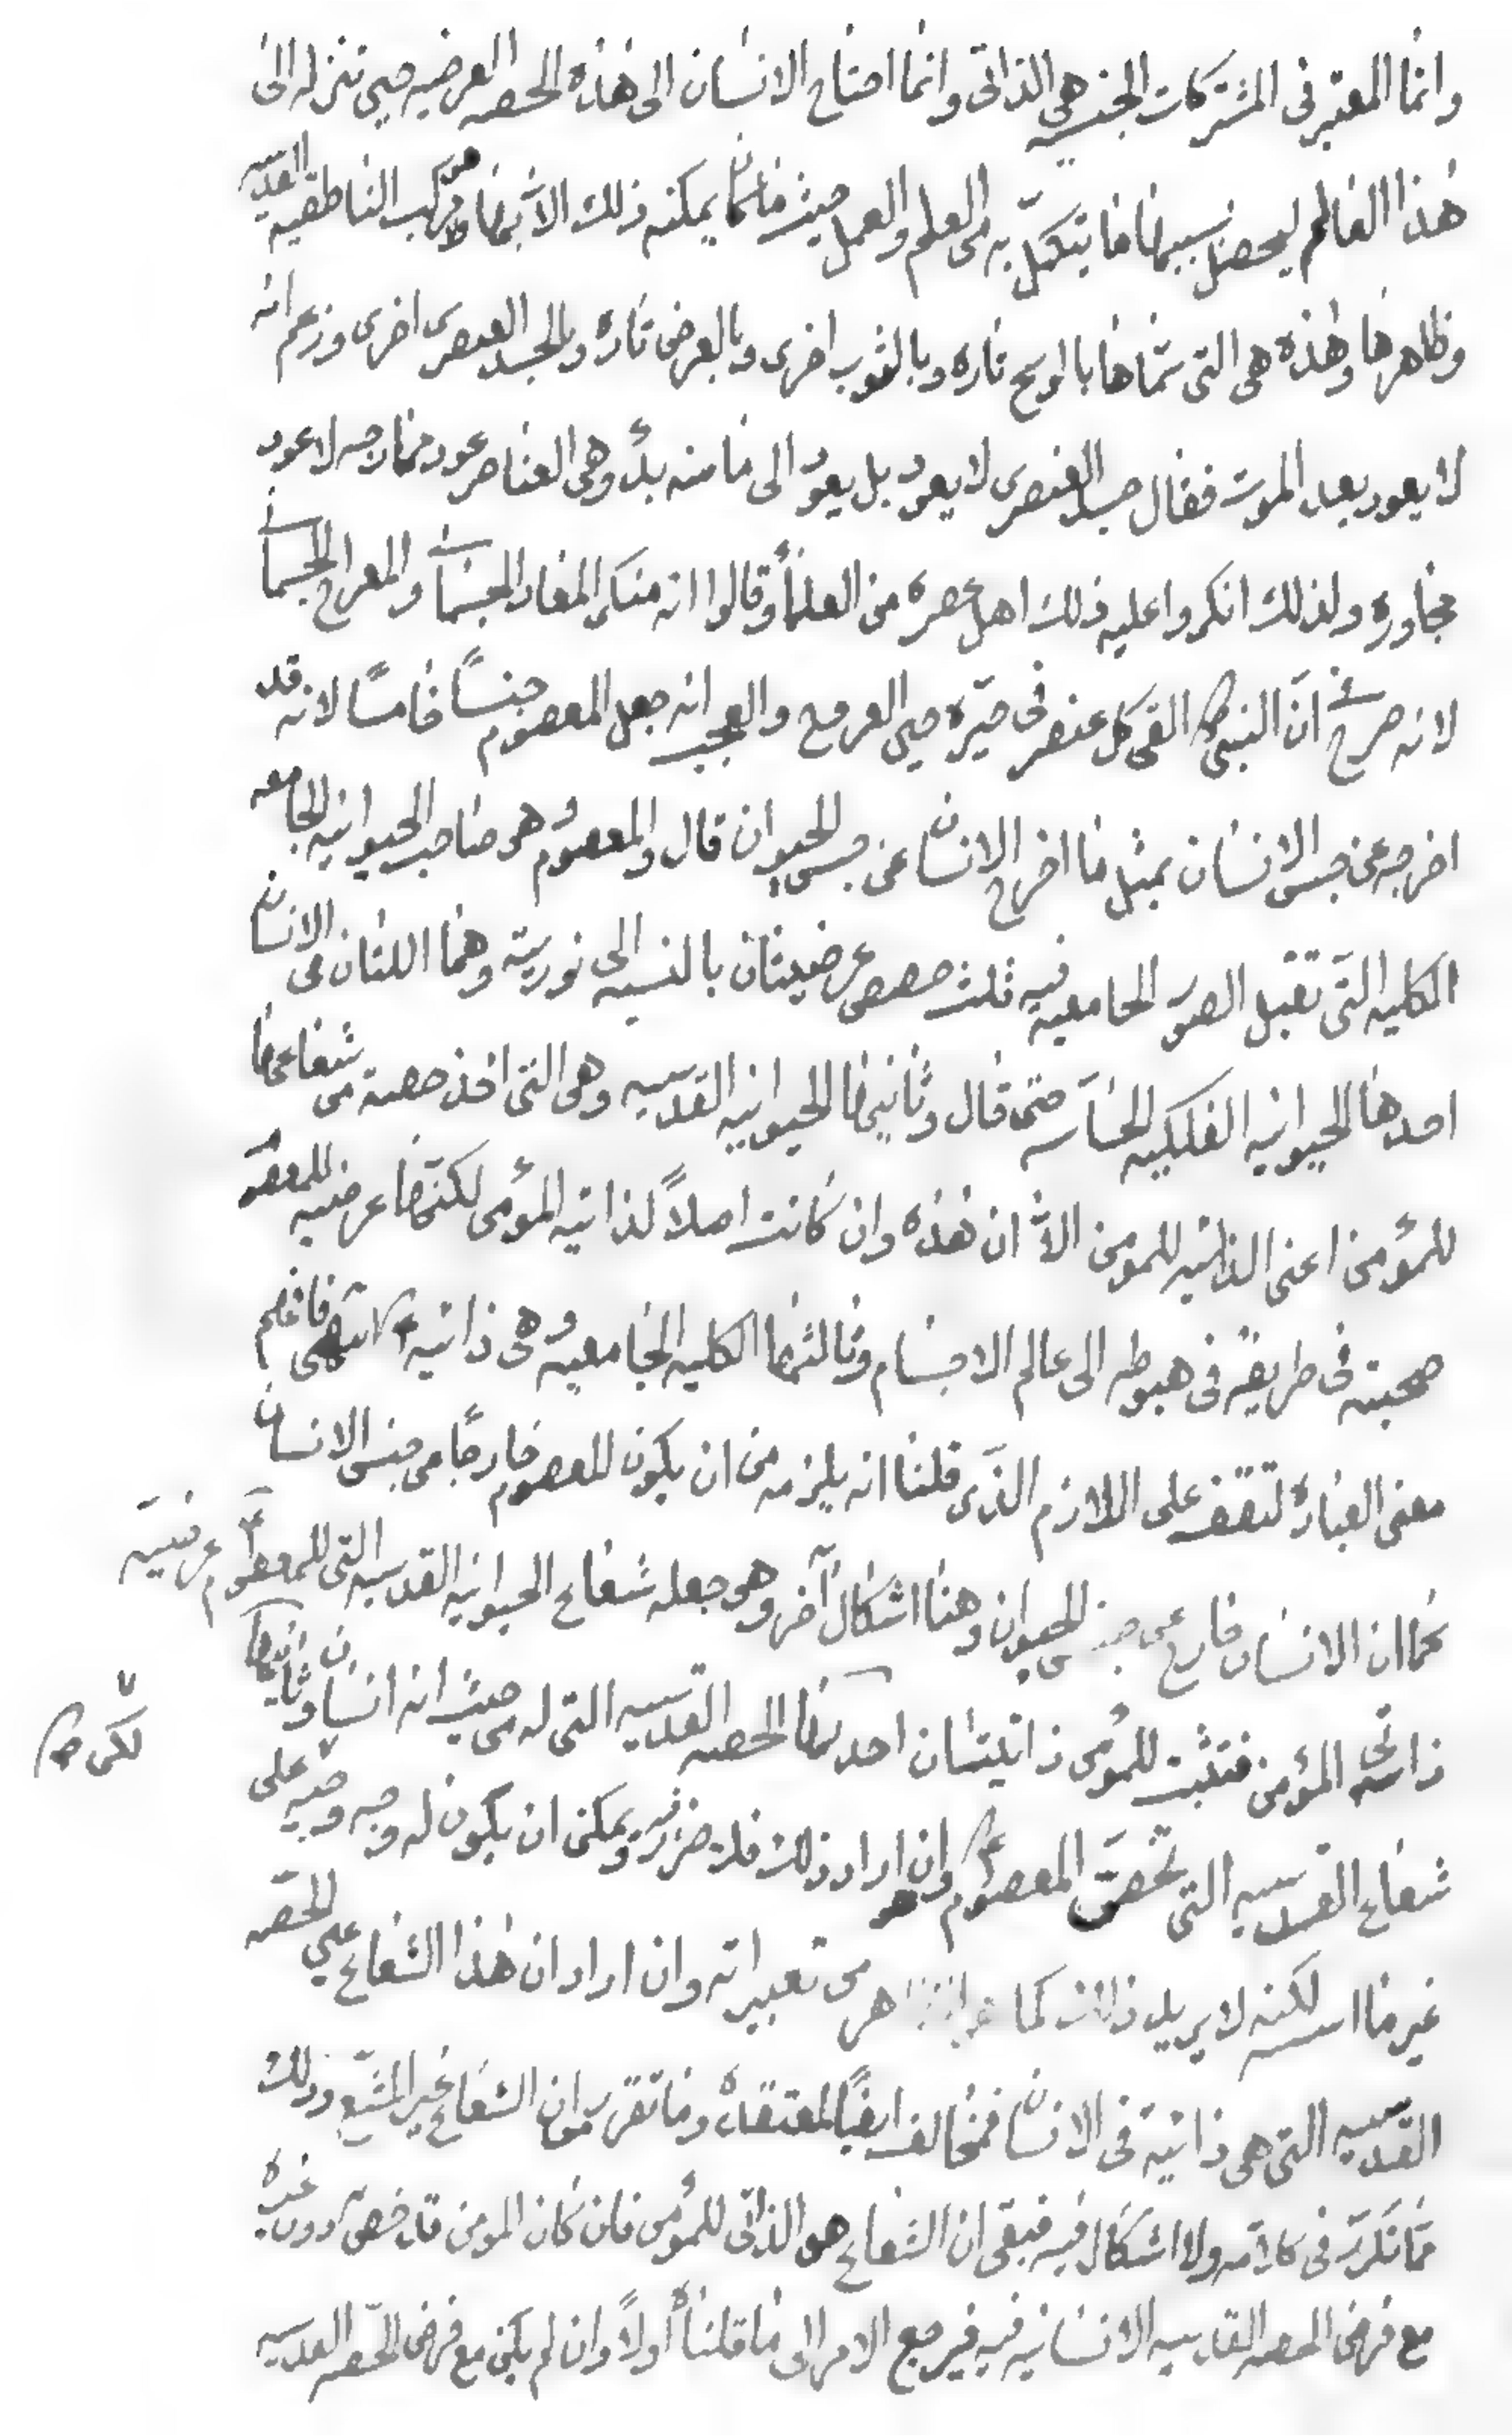 وانما المعتبر فى المشتركات الجنسيه هى الذاتى وانما احتاج الانسان الى هذه الحصه العرضيه حين تنزله الى
هذا العالم ليحصل بسببها ما يتكمل به من العلم والعمل حيث ما يمكنه ذلك الا بها مركب الناطقيه القدسيه
وظاهرها وهذه هى التى سماها بالوسخ تاره وبالثوب اخرى وبالعرض تاره وبالجسد العنصرى اخرى وزعم انه
لا يعود بعد الموت فقال جسد العنصرى لا يعود بل يعود الى ما منه بدأ وهى العناصر عود ممازجه لا عود
مجاوره ولذلك انكروا عليه ذلك اهل عصره من العلمأ وقالوا انه منكر المعاد الجسمانى والمعراج الجسمانى
لانه صرح ان النبى ص القى كل عنصر فى حيّزه حين العروج والعجب انه جعل المعصوم جنسًا خامسًا لانه قد
اخرجه عن جنس الانسان بمثل ما اخرج الانسان عن جنس الحيوان قال والمعصوم هو صاحب الحيوانيه الجامعه
الكليه التى تقبل الصور الجامعيه فيه ثلث حصص عرضيتان بالنسبه الى نوريته وهما اللتان فى الانسان
احدها الحيوانيه الفلكيه الحساسه حتى قال وثانيها الحيوانيه القدسيه وهى التى اخذ حصته من شعاعها
للمؤمن اعنى الذاتيه للمومن الا ان هذه وان كانت اصلاً لذاتيه المؤمن لكنها عرضيه للمعصوم
صحبته فى طريقه فى هبوطه الى عالم الاجسام وثالثها الكليه الجامعيه وهى ذاتيه انتهى فافهم
معنى العباره لتقف على اللازم الذى قلنا انه يلزمه من ان يكون المعصوم خارجًا من جنس الانسان
كما ان الانسان خارج عن جنس الحيوان وهنا اشكال آخر وهو جعله شعاع الحيوانيه القدسيه التى للمعصوم ع عرضيه
ذاتى المؤمن فتثبت للمؤمن ذاتيتان احدهما الحصه القدسيه التى له من حيث انه انسان وثانيهما
شعاع القدسيه التى تخص المعصوم ع وان اراد ذلك فلا ضرر فيه ويمكن ان يكون له وجه وجيه على
لكن ظ
غير ما لكنه لا يريد ذلك كما هو من تعبيراته وان اراد ان هذا الشعاع عين الحصه
القدسيه التى هى ذاتيه فى الانسان فمخالف ايضًا لمعتقده وما تقرر من ان الشعاع غير المشع وذلك
مما تكرر فى كلامه ولا اشكال فيه فبقى ان الشعاع هو الذاتى للمؤمن فان كان المومن قد خص به دون غيره
مع فرض الحصه القدسيه الانسانيه فيه فيرجع الامر الى ما قلناه أولاً وان لم يكن مع فرض الحصه القدسيه